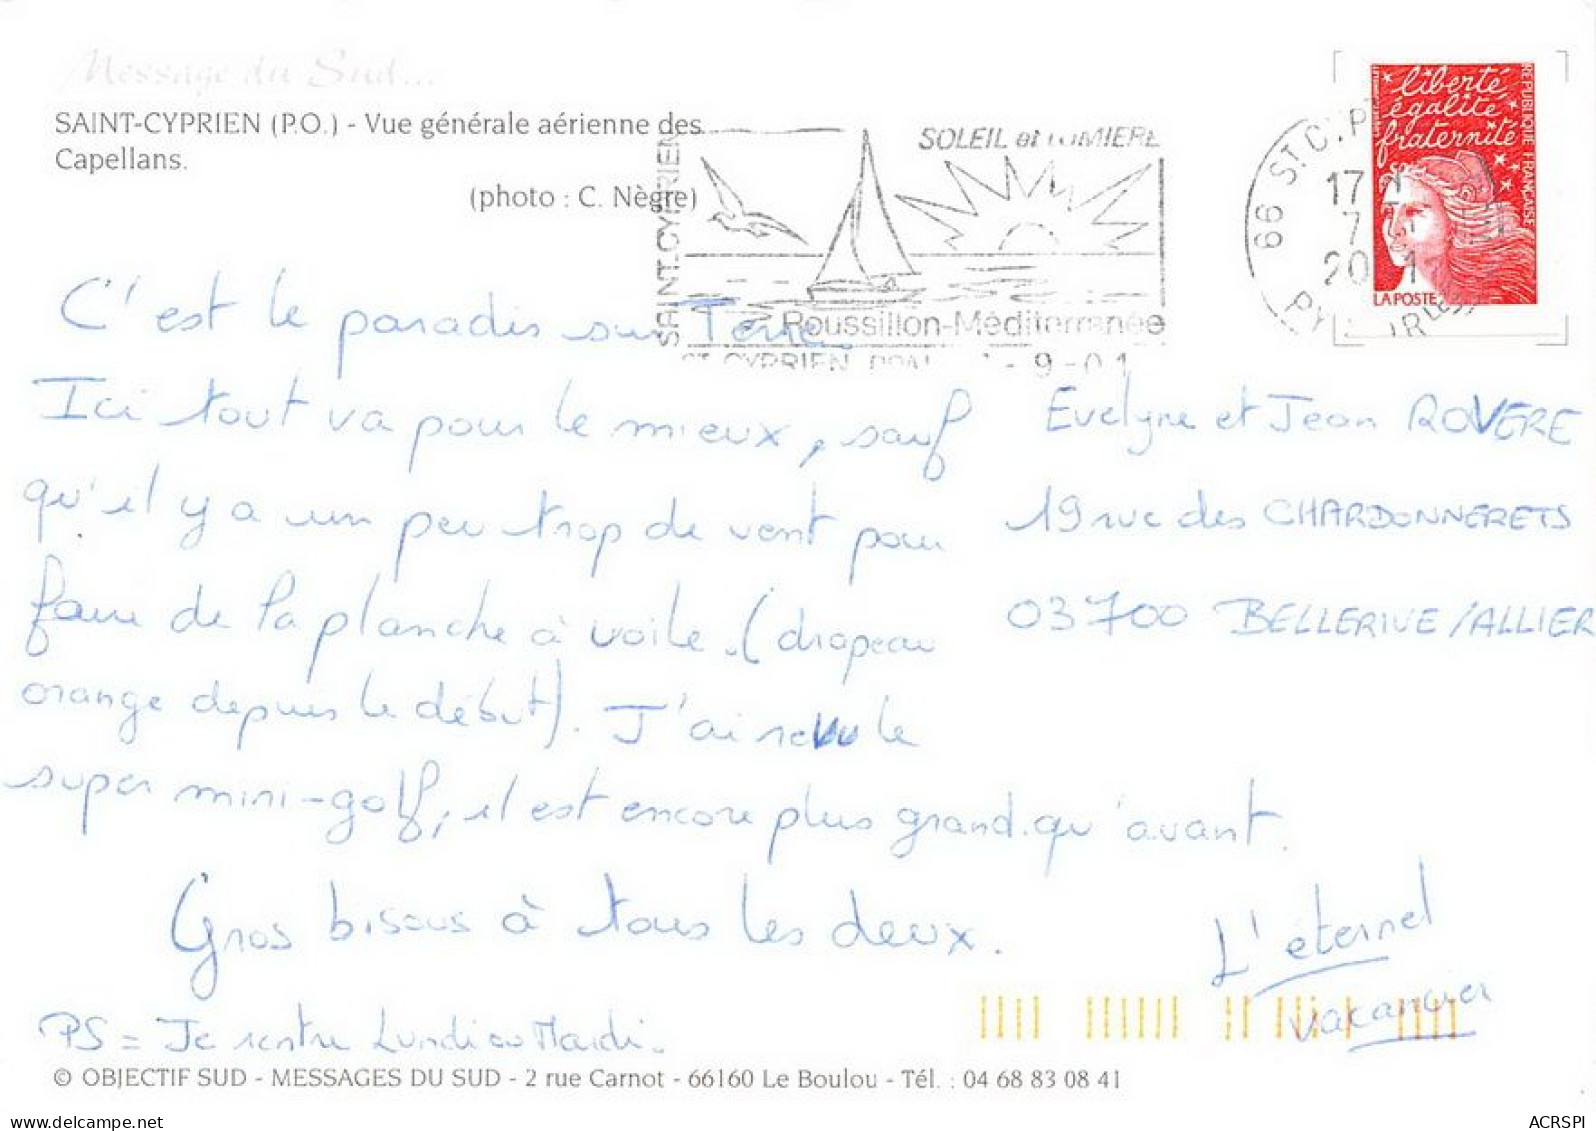 Message du Sud...
SAINT-CYPRIEN (P.O.) - Vue générale aérienne des
Capellans.
(photo : C. Nègre)
SAINT-CYPRIEN
SOLEIL et LUMIERE
Roussillon-Méditerranée
ST CYPRIEN 9-01
66 ST CYP
17 H
7
20 1
liberté
égalité
fraternité
REPUBLIQUE FRANÇAISE
LA POSTE
C'est le paradis sur Terre.
Ici tout va pour le mieux, sauf
qu'il y a un peu trop de vent pour
faire de la planche à voile. (drapeau
orange depuis le début). J'ai revu le
super mini-golf, il est encore plus grand qu'avant.
Gros bisous à tous les deux.
L'éternel
vacancier
PS = Je rentre Lundi ou Mardi.
Evelyne et Jean ROVERE
19 rue des CHARDONNERETS
03700 BELLERIVE/ALLIER
© OBJECTIF SUD - MESSAGES DU SUD - 2 rue Carnot - 66160 Le Boulou - Tél. : 04 68 83 08 41
www.delcampe.net
ACRSPI